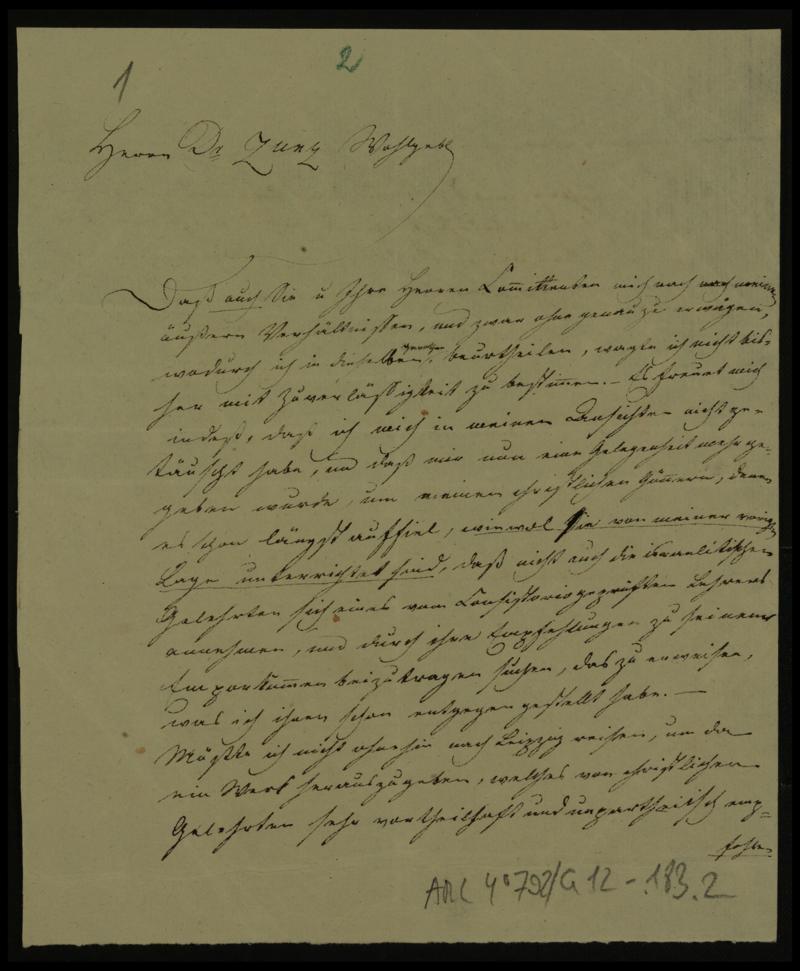 1
2
Herrn Dr Zunz Wohlgeb
Daß auch Sie u Ihre Herren Comittenten mich nach meinen
äußern Verhältnissen, und zwar ohne genau zu erwägen,
wodurch ich in dieselben gerathen, beurtheilen, wagte ich nicht bis-
her mit Zuverlässigkeit zu bestimmen. – Es freuet mich
indeß, daß ich mich in meinen Ansichten nicht ge-
täuscht habe, und daß mir nun eine Gelegenheit mehr ge-
geben wurde, um meinen christlichen Gönnern, denen
es schon längst auffiel, wiewol sie von meiner vorigen
Lage unterrichtet sind, daß nicht auch die israelitischen
Gelehrten sich eines vom Consistorio geprüften Lehrers
annehmen, und durch ihre Empfehlungen zu seinem
Emporkommen beizutragen suchen, das zu erweisen,
was ich ihnen schon entgegen gestellt habe. –
Müßte ich nicht ohnehin nach Leipzig reisen, um da
ein Werk herauszugeben, welches von christlichen
Gelehrten sehr vortheilhaft und unpartheiisch emp=
fohlen
ARC 4° 792/G 12 - 183.2